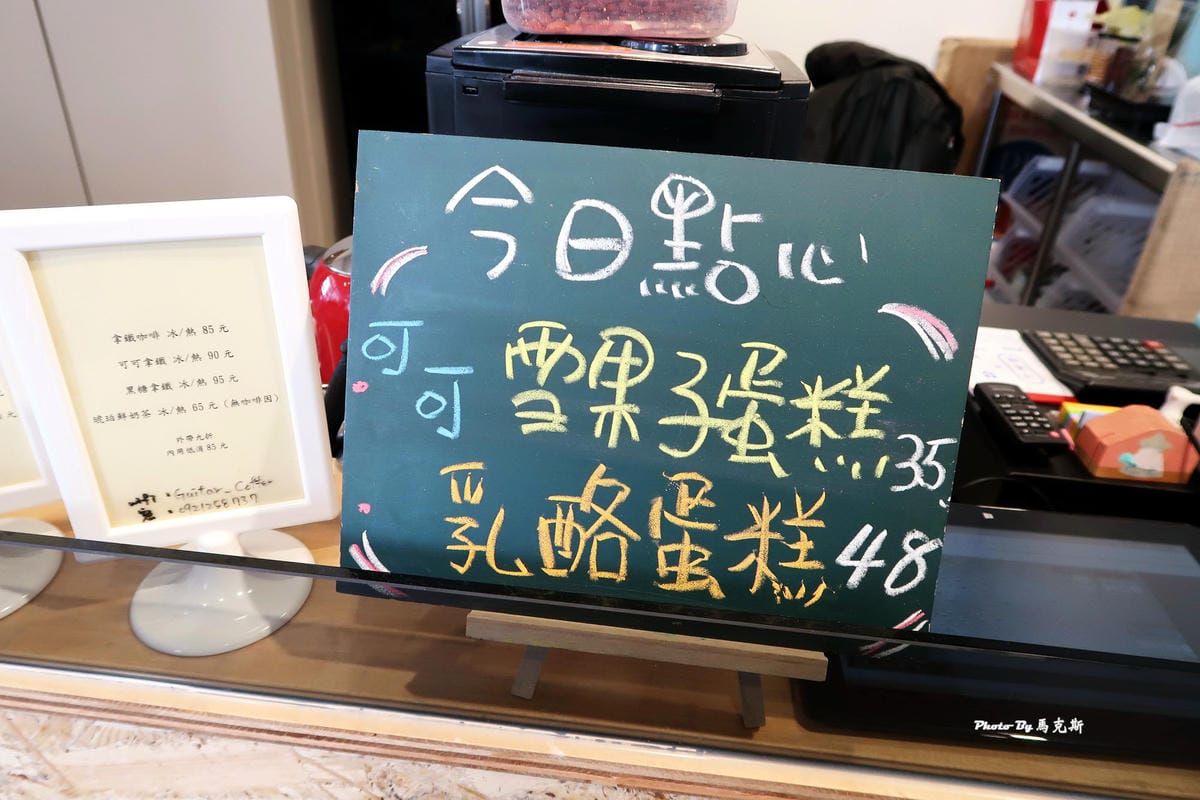 今日點心
可可
雪果子蛋糕 35
乳酪蛋糕 48
拿鐵咖啡 冰/熱 85 元
可可拿鐵 冰/熱 90 元
黑糖拿鐵 冰/熱 95 元
琥珀鮮奶茶 冰/熱 65 元（無咖啡因）
外帶九折
內用低消 85 元
: Guitar_Coffee
: 0921258737
Photo By 馬克斯